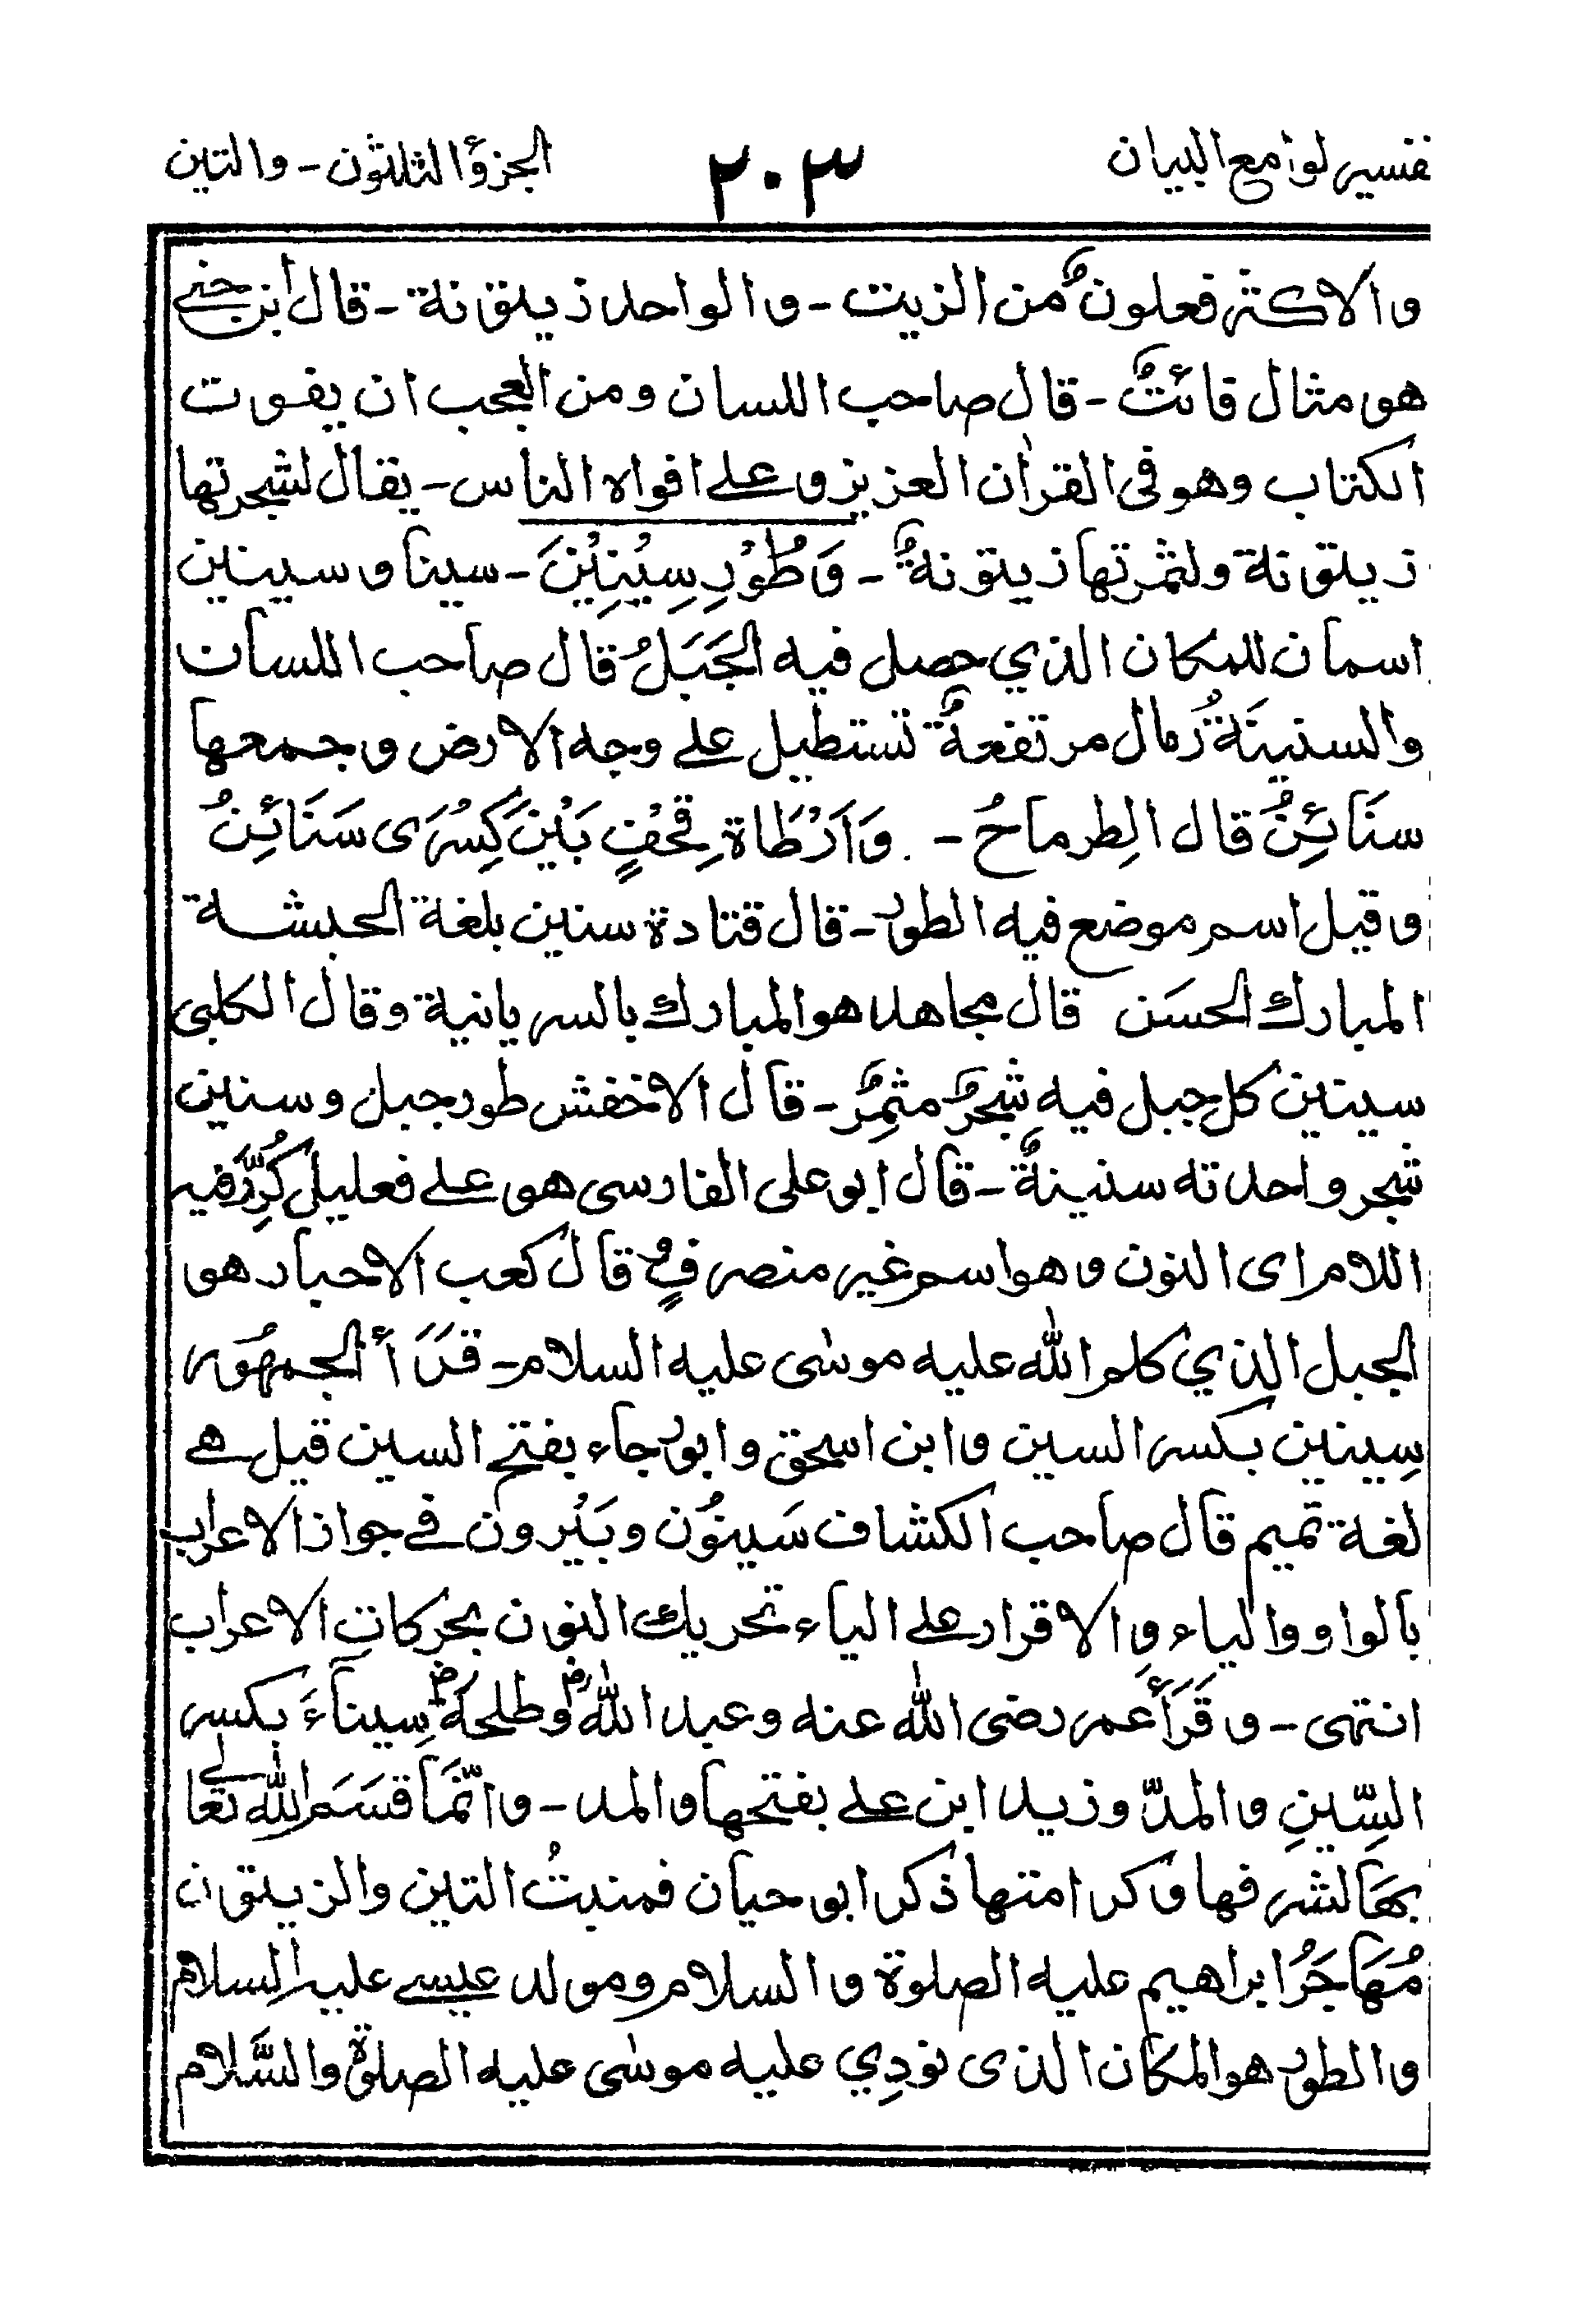 تفسير لوامع البيان ٢٠٣ الجزؤ الثلثون - والتين
والاكثر فعلونٌ من الزيت - والواحد زيتونة - قال ابن جني
هو مثال قائتٌ - قال صاحب اللسان ومن العجب ان يفوت
الكتاب وهو فى القراٰن العزيز وعلے افواه الناس - يقال لشجرتها
زيتونة ولثمرتها زيتونةٌ - وَطُوْرِ سِيْنِيْنَ - سينا وسينين
اسمان للمكان الذي حصل فيه الجَبَلُ قال صاحب اللسان
والسنينَةُ رمال مرتفعةٌ تستطيل علے وجه الارض وجمعها
سنَائِنُ قال الطِرماحُ - وَاَرْطَاةِ قِحْفٍ بَيْنَ كِسْرَى سَنَائِنُ
وقيل اسم موضع فيه الطور - قال قتادة سنين بلغة الحبشة
المبارك الحسَن قال مجاهد هو المبارك بالسريانية وقال الكلبى
سينين كل جبل فيه شجرٌ مثمِرٌ - قال الاخفش طور جبل وسنين
شجر واحدته سنينةٌ - قال ابو على الفارسى هو علے فعليل كُرِّرَ فيه
اللام اى النون وهو اسم غير منصرفٍ قال كعب الاحبار هو
الجبل الذي كلم الله عليه موسٰى عليه السلام - قَرَأَ الجمهُور
سِينين بكسر السين وابن اسحق وابو رجاء بفتح السين قيل هے
لغة تميم قال صاحب الكشاف سَينُون وبَيْرون فے جواز الاعراب
بالواو والياء والاقرار علے الياء تحريك النون بحركاتِ الاعراب
انتهى - وقَرَأَ عمر رضى الله عنه وعبد اللهؓ وطلحةؓ سِيناَءَ بكسر
السِّينِ والمدّ وزيد ابن علے بفتحها والمد - وانّمَا قسَمَ الله تعالے
بهَا لشرفها وكرامتها ذكر ابو حيان فمنبتُ التين والزيتون
مُهَاجَرُ ابراهيم عليه الصلوة والسلام ومولد عيسے عليه السلام
والطور هو المكان الذى نودِي عليه موسٰى عليه الصلوة والسَّلام